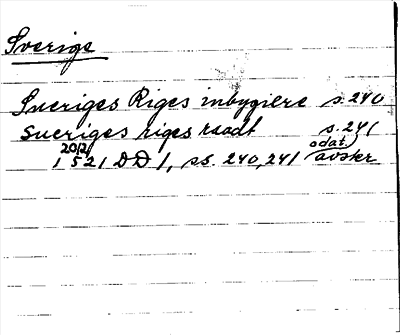 Sverige
Sueriges Riges inbygiere s. 240
Sueriges riges raadt s. 241
20/2 odat.
1521 DD 1, ss. 240, 241 avskr